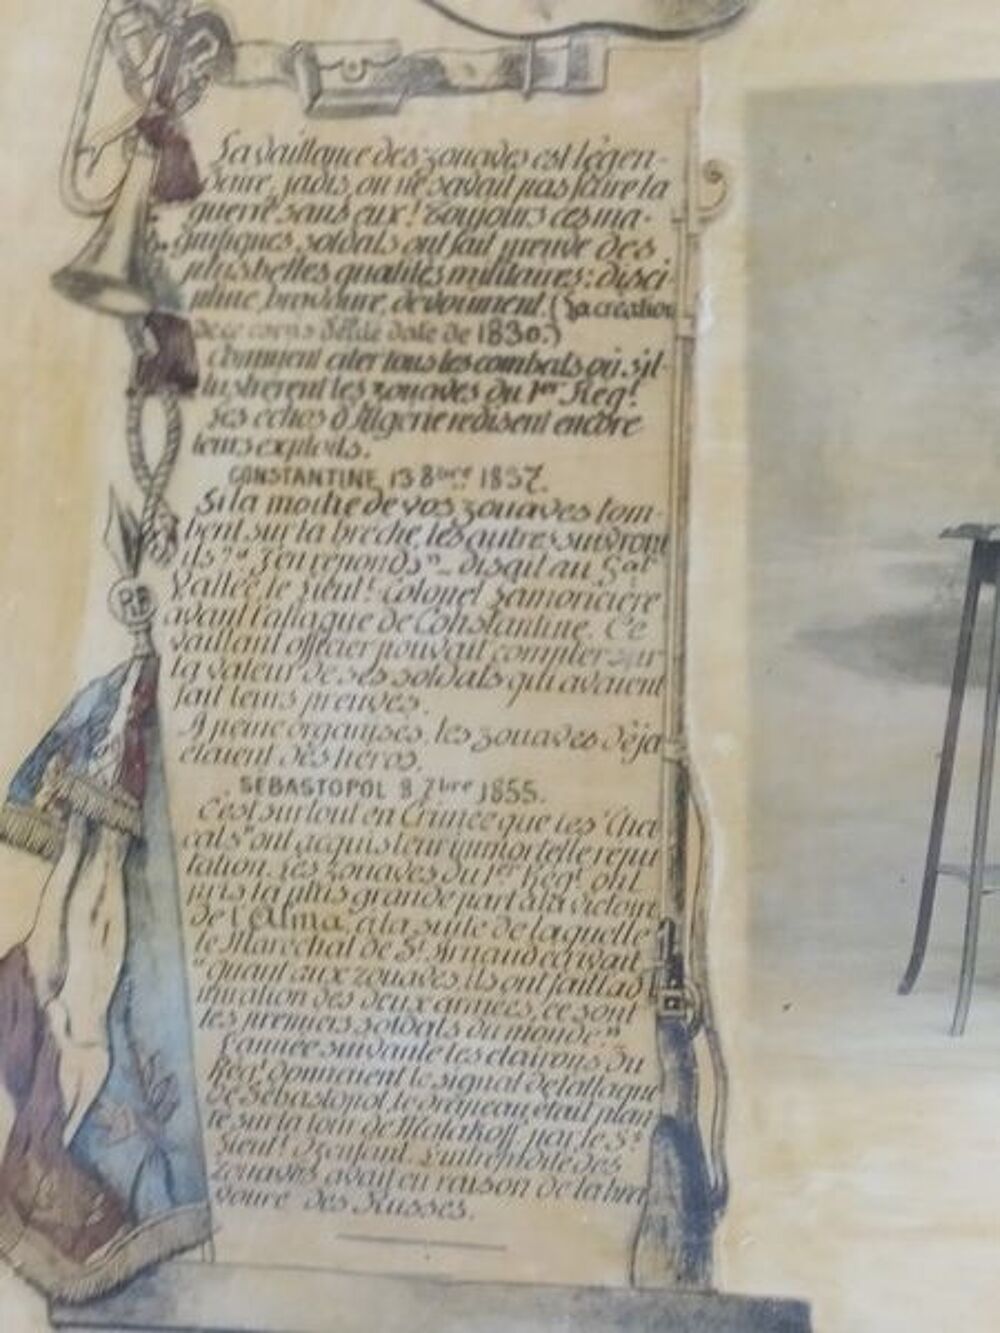 La vaillance des zouaves est légen-
daire, jadis, on ne savait pas faire la
guerre sans eux! Toujours ces ma-
gnifiques soldats ont fait preuve des
plus belles qualités militaires: disci-
pline, bravoure, dévouement. (La création
de ce corps date de 1830.)
Comment citer tous les combats où s'il-
lustrèrent les zouaves du 1er Regt.
Les échos d'Algérie redisent encore
leurs exploits.
CONSTANTINE, 13 8bre 1837.
Si la moitié de vos zouaves tom-
bent sur la brèche, les autres suivront
ils?" "J'en réponds" _ disait au Gal
Vallée le Lieut! Colonel Lamoricière
avant l'attaque de Constantine. Ce
vaillant officier pouvait compter sur
la valeur de ses soldats qui avaient
fait leurs preuves.
A peine organisés, les zouaves déja
étaient des héros.
SEBASTOPOL 8 7bre 1855.
C'est surtout en Crimée que les "Cha
cals" ont acquis leur immortelle répu
tation. Les zouaves du 1er Regt ont
pris la plus grande part à la victoire
de l'Alma, à la suite de laquelle
le Maréchal de St Arnaud écrivait
"quant aux zouaves ils ont fait l'ad
miration des deux armées, ce sont
les premiers soldats du monde"
L'année suivante les clairons du
Regt donnèrent le signal de l'attaque
de Sébastopol, le drapeau était plan
té sur la tour de Malakoff par le Ss
Lieut!. L'intrépidité des
zouaves avait eu raison de la bra
voure des Russes.
RF